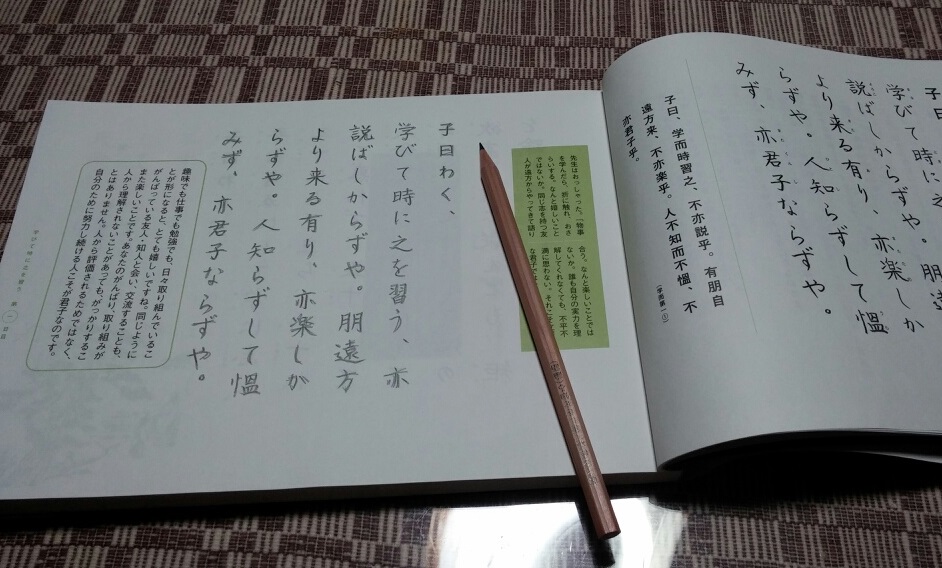 子曰
学びて時に之
説ばしからずや。朋遠
より来る有り、亦楽しか
らずや。人知らずして慍
みず、亦君子ならずや。
子曰、学而時習之、不亦説乎。有朋自
遠方来、不亦楽乎。人不知而不慍、不
亦君子乎。
先生はおっしゃった。「物事
を学んだら、折に触れ、おさ
らいする。なんと嬉しいこと
ではないか。同じ志を持つ友
人が遠方からやってきて語り
合う。なんと楽しいことでは
ないか。誰も自分の実力を理
解してくれなくても、不平不
満に思わない。それこそ
な君子では
子曰わく、
学びて時に之を習う、亦
説ばしからずや。朋遠方
より来る有り、亦楽しか
らずや。人知らずして慍
みず、亦君子ならずや。
趣味でも仕事でも勉強でも、日々取り組んでいるこ
とが形になると、とても嬉しいですね。同じように
がんばっている友人・知人と会い、交流することも、
また楽しいことです。あなたのがんばり、取り組みが
人から理解されないことがあっても、がっかりするこ
とはありません。人から評価されるためではなく、
自分のために努力し続ける人こそが君子なのです。
学びて時に之を習う